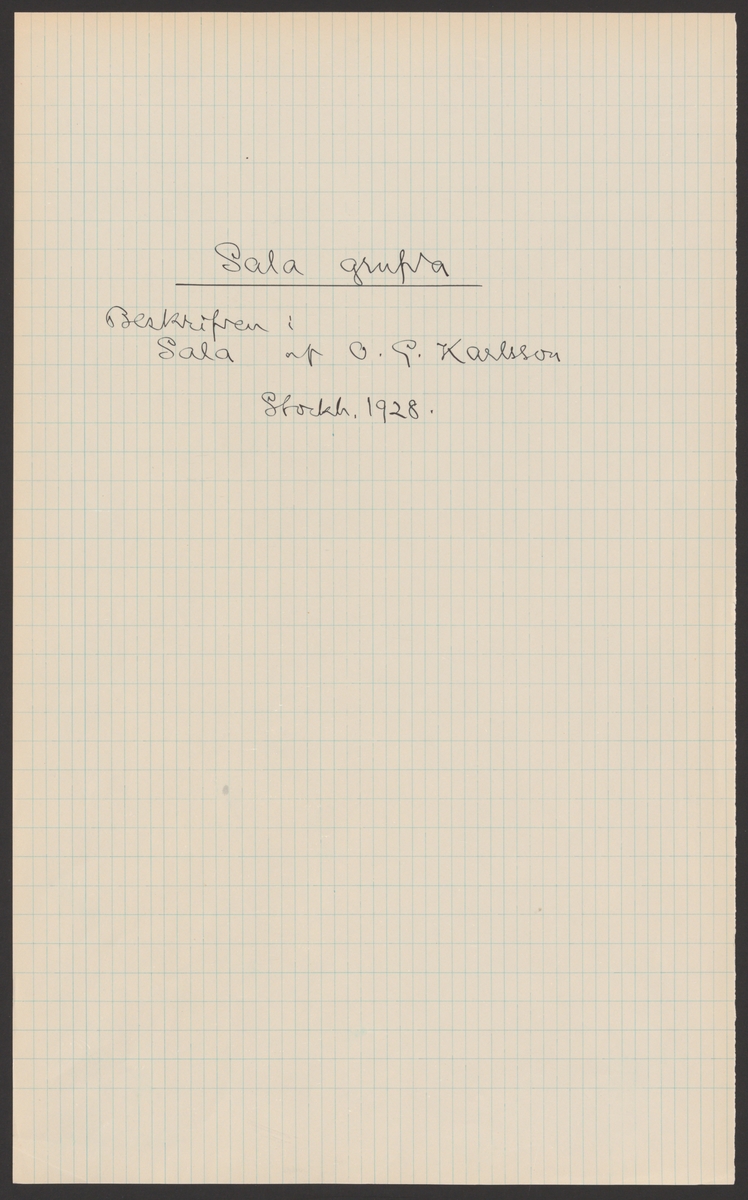 Sala grufva
Beskrifven i
Sala af O. G. Karlsson
Stockh. 1928.